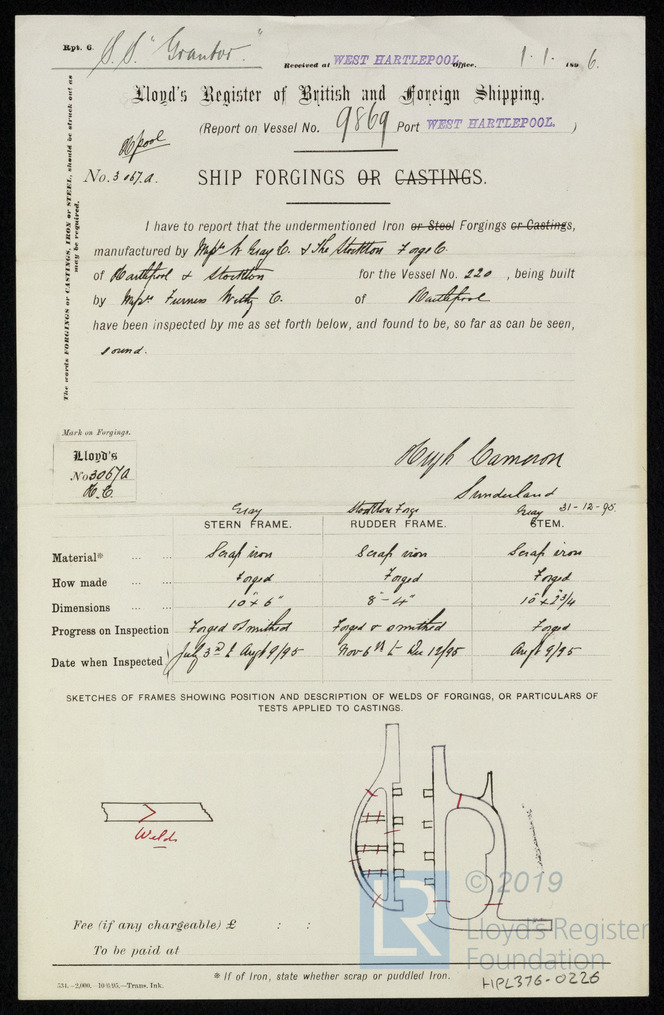 Rpt. 6.
S.S. "Grantor"
Received at WEST HARTLEPOOL Office. 1.1. 1896.
Lloyd's Register of British and Foreign Shipping.
(Report on Vessel No. 9869 Port WEST HARTLEPOOL. )
Hpool
No. 3067.a. SHIP FORGINGS OR CASTINGS.
The words FORGINGS or CASTINGS, IRON or STEEL, should be struck out as may be required.
I have to report that the undermentioned Iron or Steel Forgings or Castings,
manufactured by Messrs W Gray & Co. & The Stockton Forge Co.
of Hartlepool & Stockton for the Vessel No. 220, being built
by Messrs Furness Withy Co. of Hartlepool
have been inspected by me as set forth below, and found to be, so far as can be seen,
sound.
Mark on Forgings.
Lloyd's
No 3067a
H.C.
Hugh Cameron
Sunderland
31-12-95.
Gray Stockton Forge Gray
STERN FRAME. RUDDER FRAME. STEM.
Material* ... ... Scrap iron Scrap iron Scrap iron
How made ... ... Forged Forged Forged
Dimensions ... ... 10" x 6" 8" - 4" 10" x 2 3/4
Progress on Inspection Forged & smithed Forged & smithed Forged
Date when Inspected July 3rd to Augt 9/95 Nov 6th to Dec 12/95 Augt 9/95
SKETCHES OF FRAMES SHOWING POSITION AND DESCRIPTION OF WELDS OF FORGINGS, OR PARTICULARS OF
TESTS APPLIED TO CASTINGS.
Welds
© 2019
LR
Lloyd's Register
Foundation
Fee (if any chargeable) £ : :
To be paid at
* If of Iron, state whether scrap or puddled Iron.
534.-2,000.-10/6/95.-Trans. Ink.
HPL376-0226